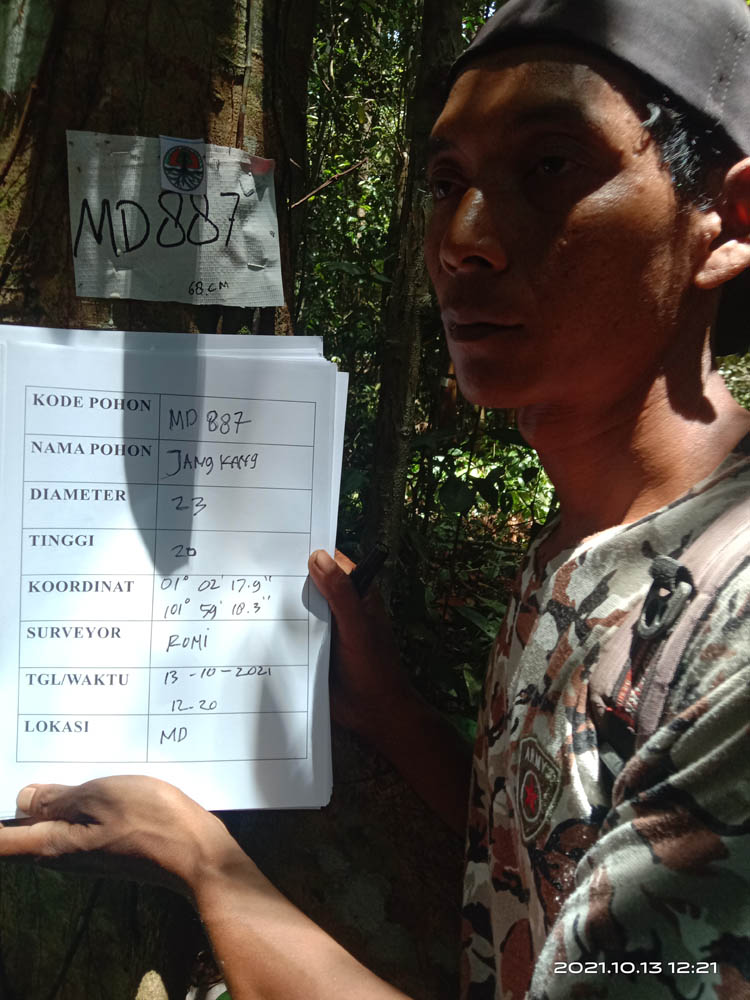 MD887
68.CM
KODE POHON MD 887
NAMA POHON JANGKANG
DIAMETER 23
TINGGI 20
KOORDINAT 01° 02' 17.9"
101° 59' 18.3"
SURVEYOR ROMI
TGL/WAKTU 13-10-2021
12.20
LOKASI MD
ARMY
2021.10.13 12:21